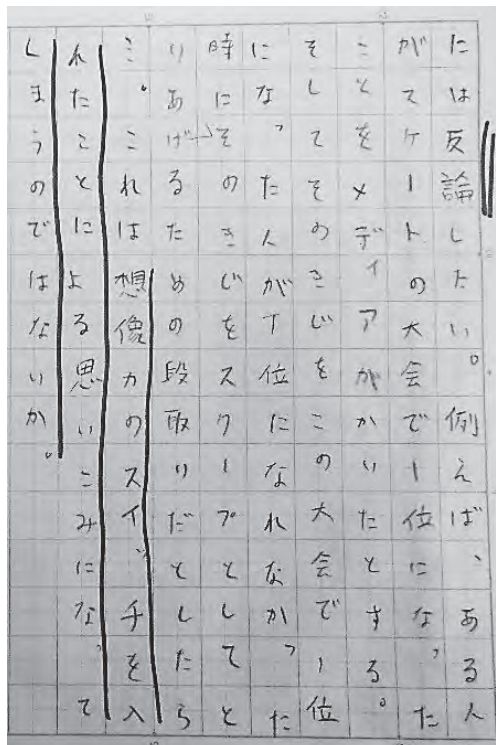 には反論したい。例えば、ある人
がスケートの大会で一位になった
ことをメディアがかいたとする。
そしてそのきじをこの大会で1位
になった人がT位になれなかった
時にそのきじをスクープとしてと
りあげるための段取りだとしたら
こ。これは想像力のスイッチを入
れたことによる思いこみになって
しまうのではないか。